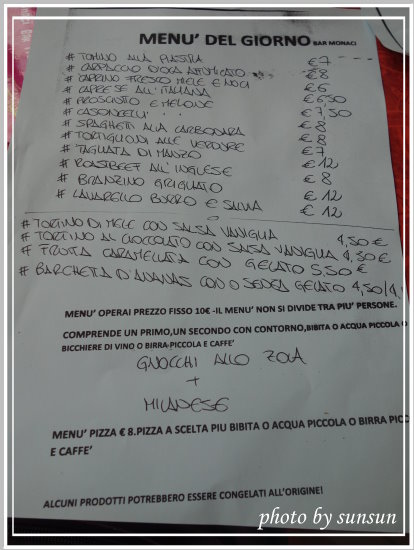 MENU' DEL GIORNO BAR MONACI
# TOMINO ALLA PIASTRA € 7
# CARPACCIO D'OCA AFFUMICATO € 8
# CAPRINO FRESCO MIELE E NOCI € 6
# CAPRESE ALL'ITALIANA € 6,50
# PROSCIUTTO E MELONE € 7,50
# CASONCELLI € 8
# SPAGHETTI ALLA CARBONARA € 8
# TORTIGLIONI ALLE VERDURE € 7
# TAGLIATA DI MANZO € 12
# ROASTBEEF ALL'INGLESE € 8
# BRANZINO GRIGLIATO € 12
# LAVARELLO BURRO E SALVIA € 12
# TORTINO DI MELE CON SALSA VANIGLIA 4,50 €
# TORTINO AL CIOCCOLATO CON SALSA VANIGLIA 4,50 €
# FRUTTA CARAMELLATA CON GELATO 5,50 €
# BARCHETTA D'ANANAS CON O SENZA GELATO 4,50/4,
MENU' OPERAI PREZZO FISSO 10€ -IL MENU' NON SI DIVIDE TRA PIU' PERSONE.
COMPRENDE UN PRIMO,UN SECONDO CON CONTORNO,BIBITA O ACQUA PICCOLA O
BICCHIERE DI VINO O BIRRA PICCOLA E CAFFE'
GNOCCHI ALLO ZOLA
+
MILANESE
MENU' PIZZA € 8.PIZZA A SCELTA PIU BIBITA O ACQUA PICCOLA O BIRRA PICC
E CAFFE'
ALCUNI PRODOTTI POTREBBERO ESSERE CONGELATI ALL'ORIGINE!
photo by sunsun